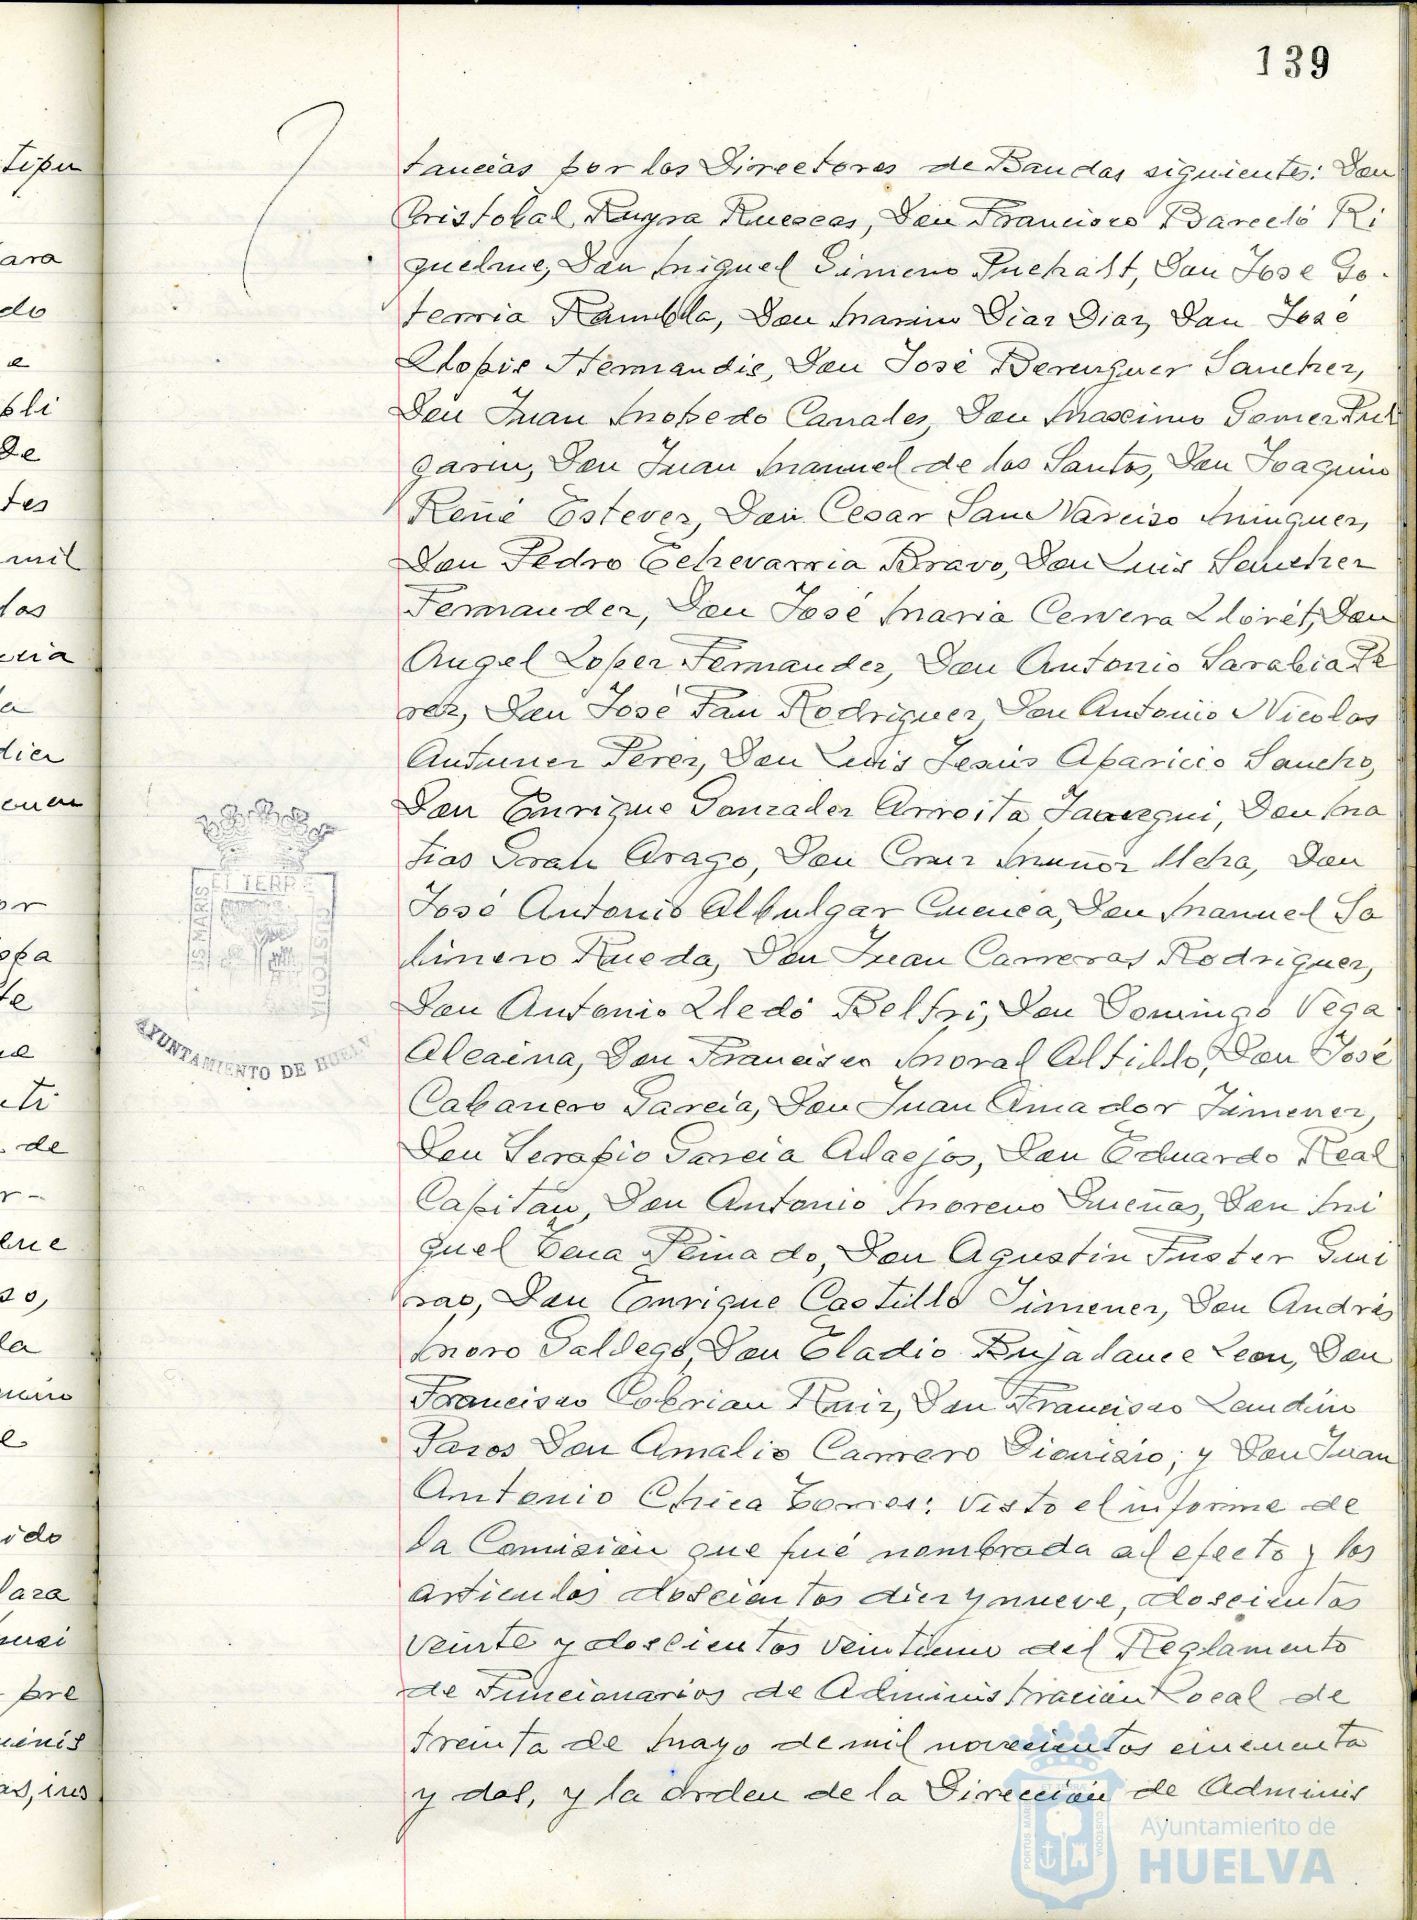 139
tancias por los Directores de Bandas siguientes: Don
Cristobal Ruyra Ruescas, Don Francisco Barceló Ri
quelme, Don Miguel Gimeno Puchalt, Don Jose Go-
terria Rambla, Don Marino Diaz Diaz, Don José
Llopis Hernandis, Don José Berenguer Sanchez,
Don Juan Mopedo Canales, Don Maximo Gomez Pul
garin, Don Juan Manuel de los Santos, Don Joaquin
Reñé Estevez, Don Cesar San Narciso Minguez,
Don Pedro Echevarria Bravo, Don Luis Sanchez
Fernandez, Don José Maria Cervera Llorét, Don
Angel Lopez Fernandez, Don Antonio Sarabia Pe
rez, Don José Pan Rodriguez, Don Antonio Nicolas
Antunez Perez, Don Luis Jesús Aparicio Sancho,
Don Enrique Gonzalez Arroita Jauregui, Don Ma
tias Gran Arago, Don Cruz Muñoz Ucha, Don
José Antonio Albulgar Cuenca, Don Manuel Sa
linero Rueda, Don Juan Carreras Rodriguez,
Don Antonio Lledó Beltri, Don Domingo Vega
Alcaina, Don Francisco Moral Altillo, Don José
Cabanero Garcia, Don Juan Amador Jimenez,
Don Serapio Garcia Alaejos, Don Eduardo Real
Capitán, Don Antonio Moreno Dueñas, Don Mi
guel Tena Peinado, Don Agustin Fuster Gui
rao, Don Enrique Castillo Jimenez, Don Andrés
Moro Gallego, Don Eladio Bujalance Leon, Don
Francisco Cebrian Ruiz, Don Francisco Landin
Pazos Don Amalio Carrero Dionisio; y Don Juan
Antonio Chica Torres: Visto el informe de
la Comisión que fué nombrada al efecto y los
articulos doscientos diez y nueve, doscientos
veinte y doscientos veintiuno del Reglamento
de Funcionarios de Administracion Local de
treinta de Mayo de mil novecientos cincuenta
y dos, y la orden de la Dirección de Adminis
ET TERRE
AYUNTAMIENTO DE HUELV
Ayuntamiento de
HUELVA